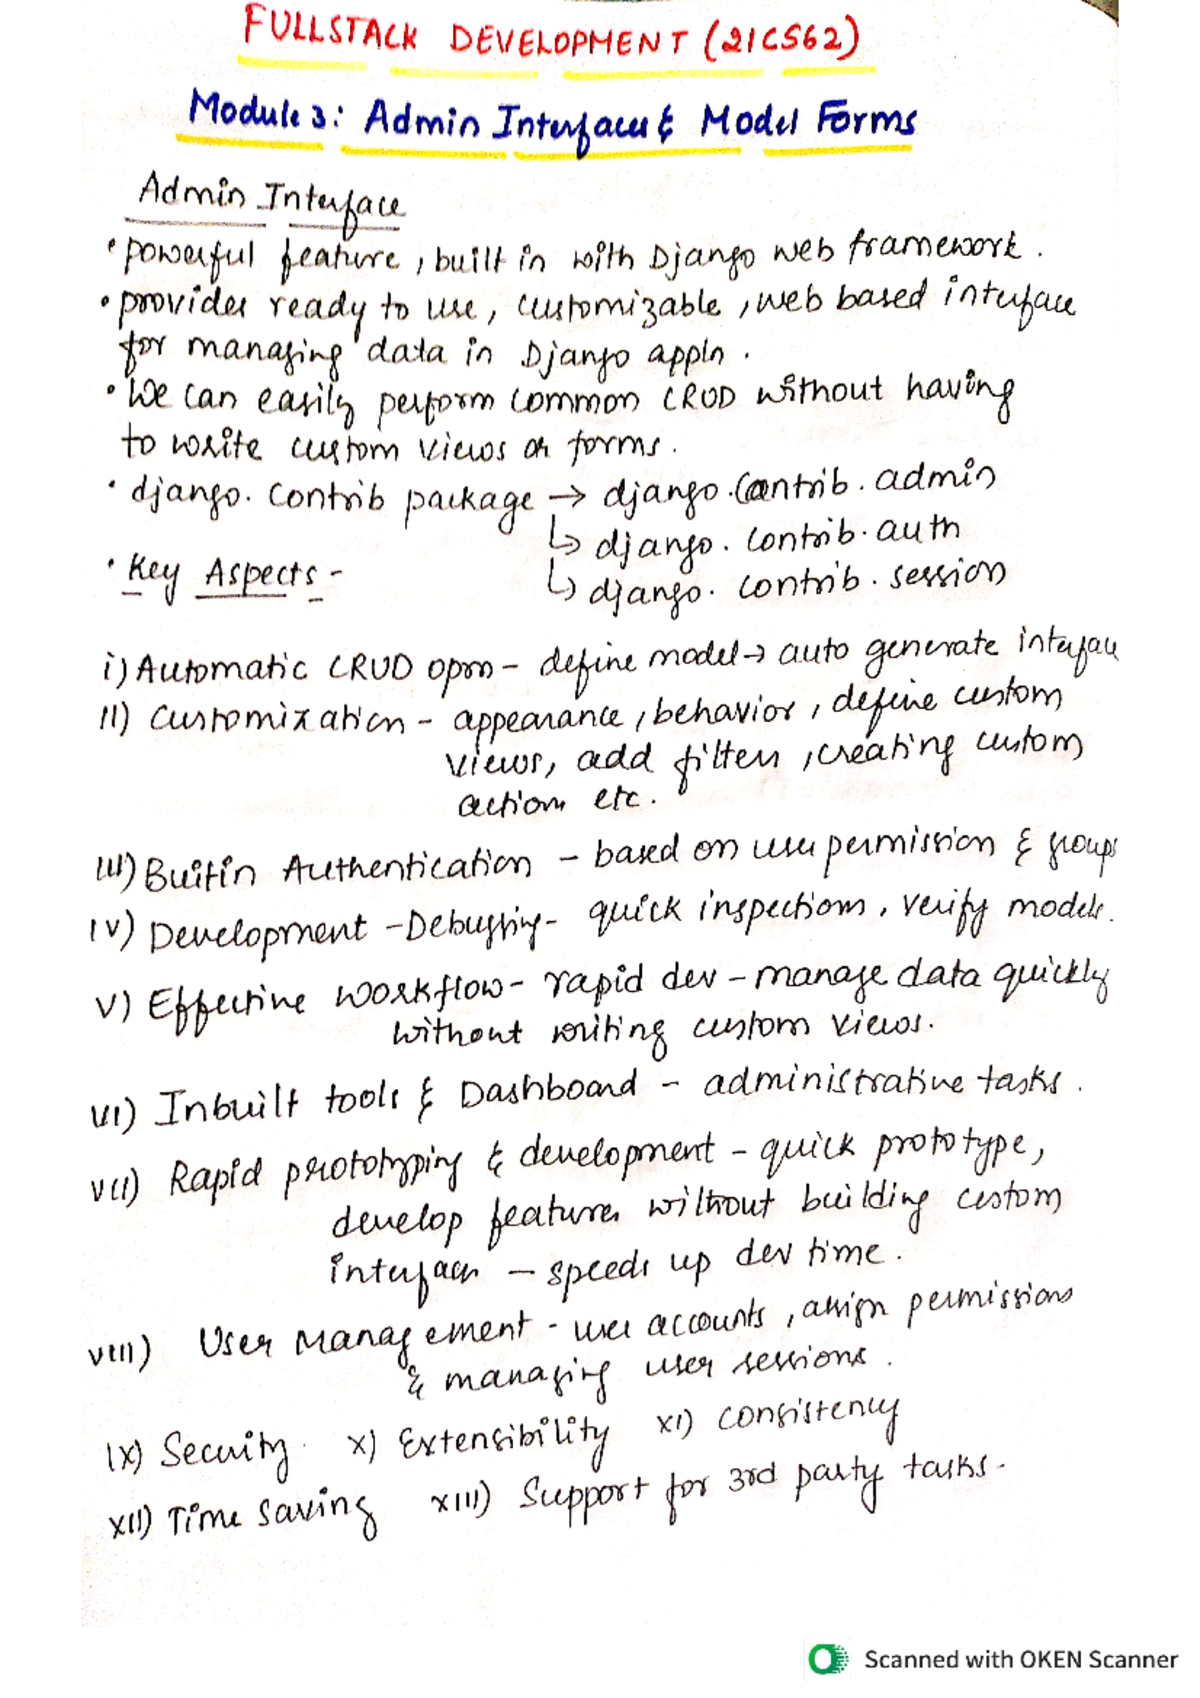 FULLSTACK DEVELOPMENT (21CS62)
Module 3: Admin Interfaces & Model Forms
Admin Interface
• powerful feature, built in with Django web framework.
• provides ready to use, customizable, web based interface
for managing data in Django appln.
• We can easily perform common CRUD without having
to write custom views or forms.
• django. contrib package → django.contrib.admin
↳ django. contrib. auth
• Key Aspects -
↳ django. contrib. session
i) Automatic CRUD oprn - define model → auto generate interface
II) Customization - appearance, behavior, define custom
views, add filters, creating custom
actions etc.
III) Builtin Authentication - based on user permission & groups
IV) Development - Debugging - quick inspections, verify models.
V) Effective workflow - rapid dev - manage data quickly
without writing custom views.
VI) Inbuilt tools & Dashboard - administrative tasks.
VII) Rapid prototyping & development - quick prototype,
develop features without building custom
interfaces - speeds up dev time.
VIII) User Management - user accounts, assign permissions
& managing user sessions.
IX) Security. X) Extensibility XI) Consistency
XII) Time saving XIII) Support for 3rd party tasks.
Scanned with OKEN Scanner